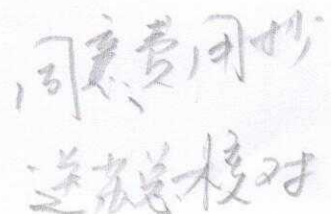 同意费用抄
送苏总核对